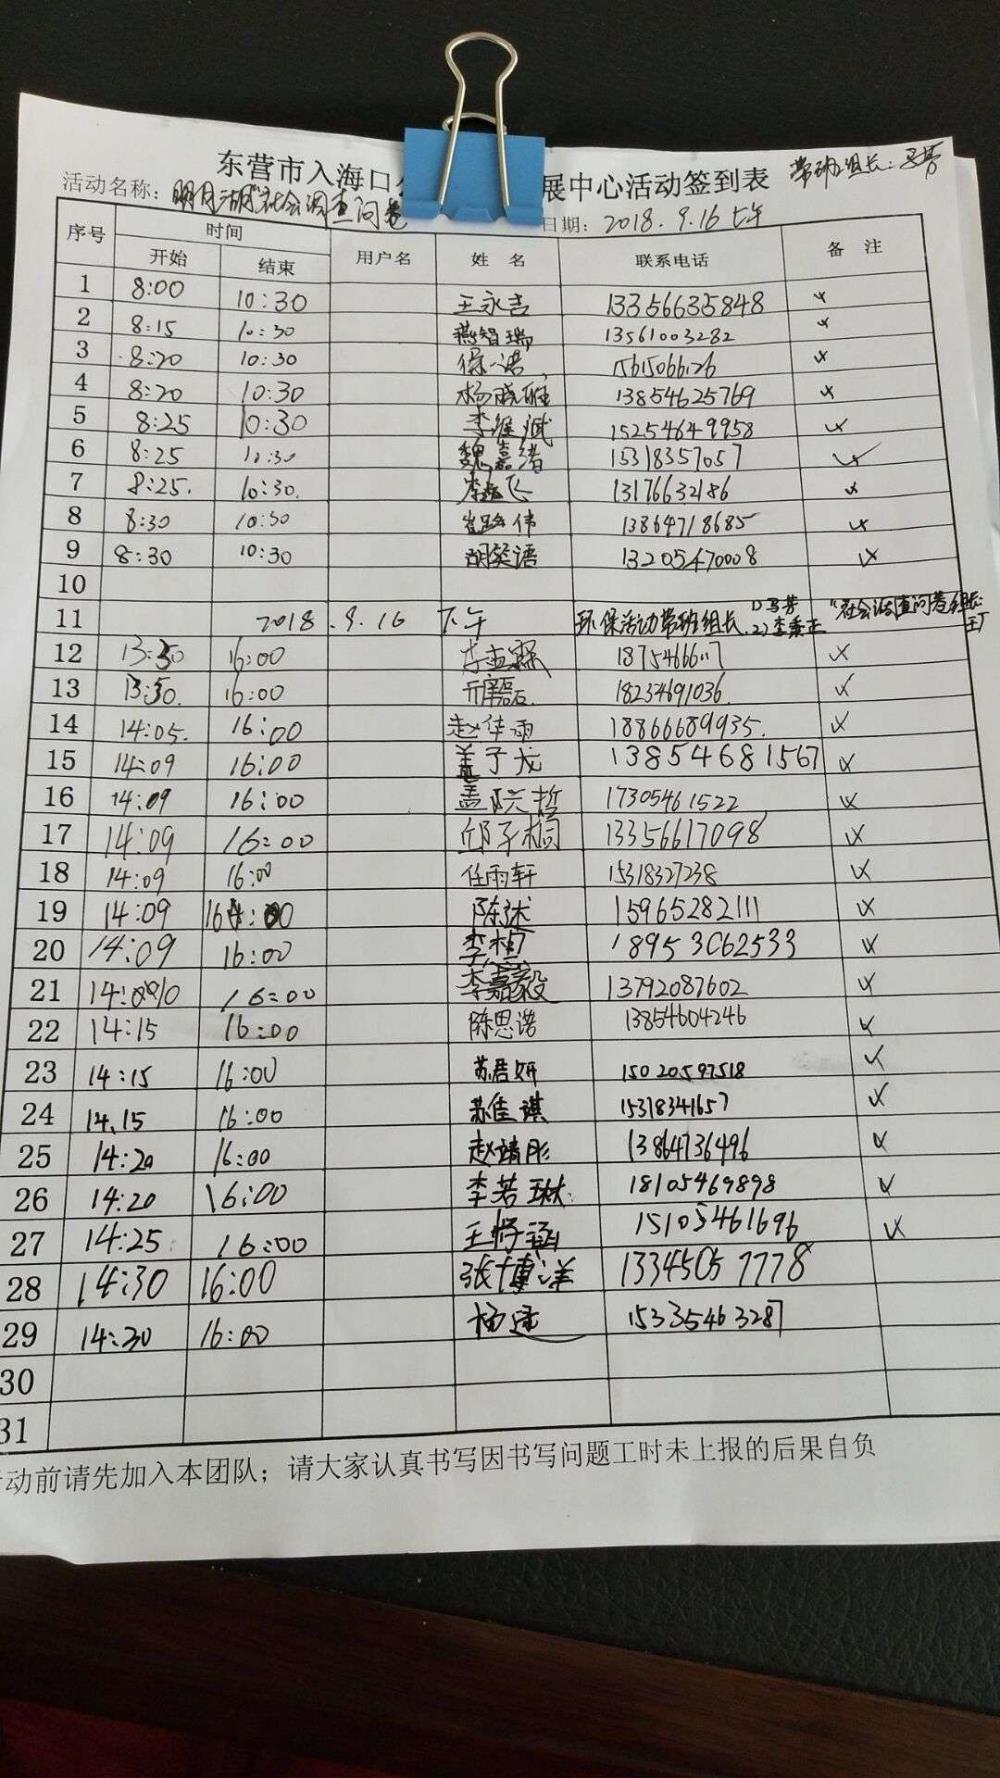 东营市入海口 展中心活动签到表 带班组长:
活动名称: 明月湖"社会调查问卷 日期: 2018.9.16 上午
序号 时间 用户名 姓名 联系电话 备注
开始 结束
1 8:00 10:30 王永吉 13356635848
2 8:15 10:30 燕智瑞 13561003282
3 8:20 10:30 徐一诺 15615066126
4 8:20 10:30 杨晓雅 13854625769
5 8:25 10:30 李维斌 15254649958
6 8:25 10:30 魏嘉绪 15318357057
7 8:25. 10:30. 飞 13176632186
8 8:30 10:30 伟 13864718685
9 8:30 10:30 胡奕语 13205470008
10
11 2018.9.16 下午 环保活动带班组长 1) 马芳 2) 李秉正 "社会调查问卷组长:
12 13:50 16:00 李孟霖 18754666117
13 13:50. 16:00 亓磊石. 18234691036.
14 14:05. 16:00 赵华雨 18866689935.
15 14:09 16:00 盖子龙 13854681567
16 14:09 16:00 盖院哲 17305461522
17 14:09 16:00 邱子桐 13356617098
18 14:09 16:00 任雨轩 15318327238
19 14:09 16:00 陈述 15965282111
20 14:09 16:00 李想 18953062533
21 14:10 16:00 李嘉毅 13792087602
22 14:15 16:00 陈思诺 13854604246
23 14:15 16:00 苏居妍 15020597518
24 14.15 16:00 苏佳琪 15318341657
25 14:20 16:00 赵靖彤 13864736496
26 14:20 16:00 李若琳. 18105469898
27 14:25 16:00 王梓涵 15105461696
28 14:30 16:00 张博洋 13345057778
29 14:30 16:00 杨 15335463287
30
31
动前请先加入本团队；请大家认真书写因书写问题工时未上报的后果自负